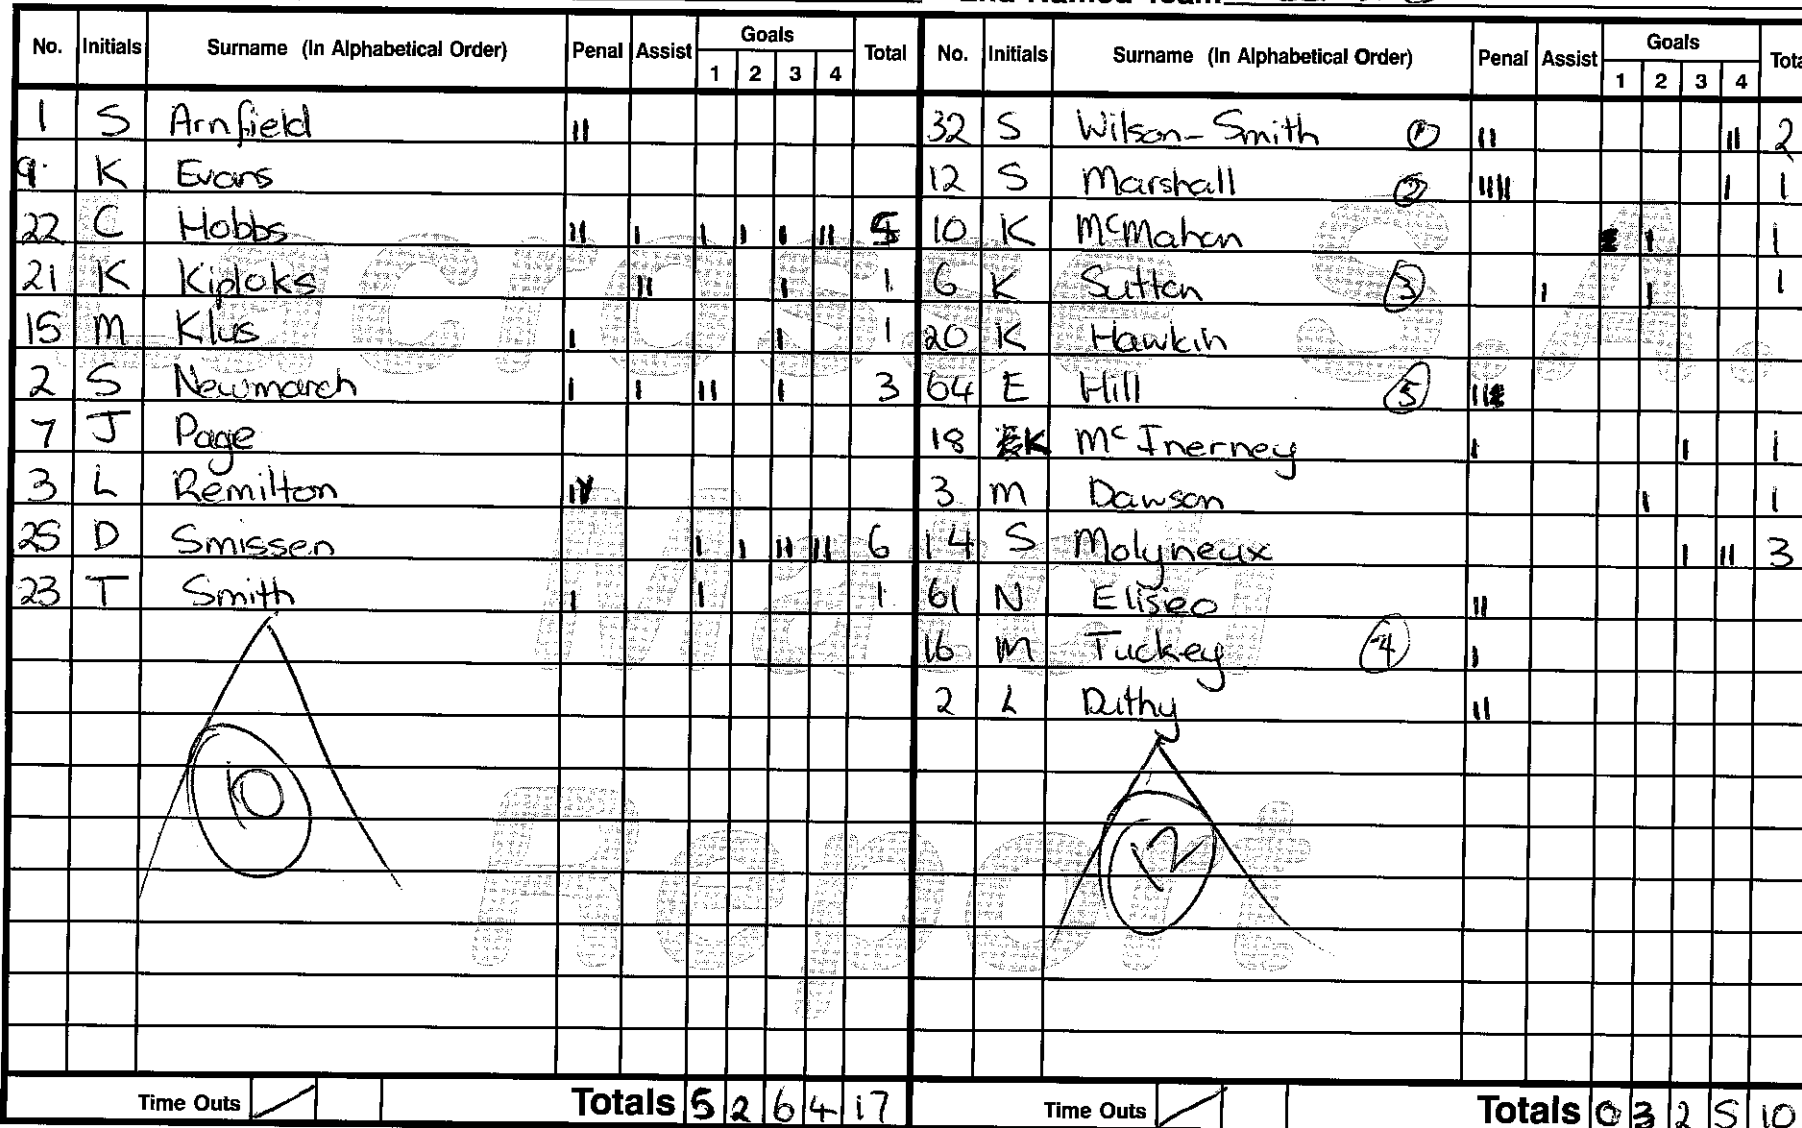 2nd Named Team
No. Initials Surname (In Alphabetical Order) Penal Assist Goals 1 2 3 4 Total
1 S Arnfield II
9 K Evans
22 C Hobbs II I I I I II 5
21 K Kiploks II I 1
15 M Klus I I 1
2 S Newmarch I I II I 3
7 J Page
3 L Remilton
25 D Smissen I I II II 6
23 T Smith I I 1
10
Time Outs / Totals 5 2 6 4 17
No. Initials Surname (In Alphabetical Order) Penal Assist Goals 1 2 3 4 Tota
32 S Wilson-Smith 1 II II 2
12 S Marshall 2 IIII I 1
10 K McMahon I 1
6 K Sutton 3 I I 1
20 K Hawkin
64 E Hill 5 II
18 K McInerney I I 1
3 M Dawson I 1
14 S Molyneux I II 3
61 N Eliseo II
16 M Tuckey 4 I
2 L Duthy II
12
Time Outs / Totals 0 3 2 5 10
Lacrosse S.A.
Match
Report